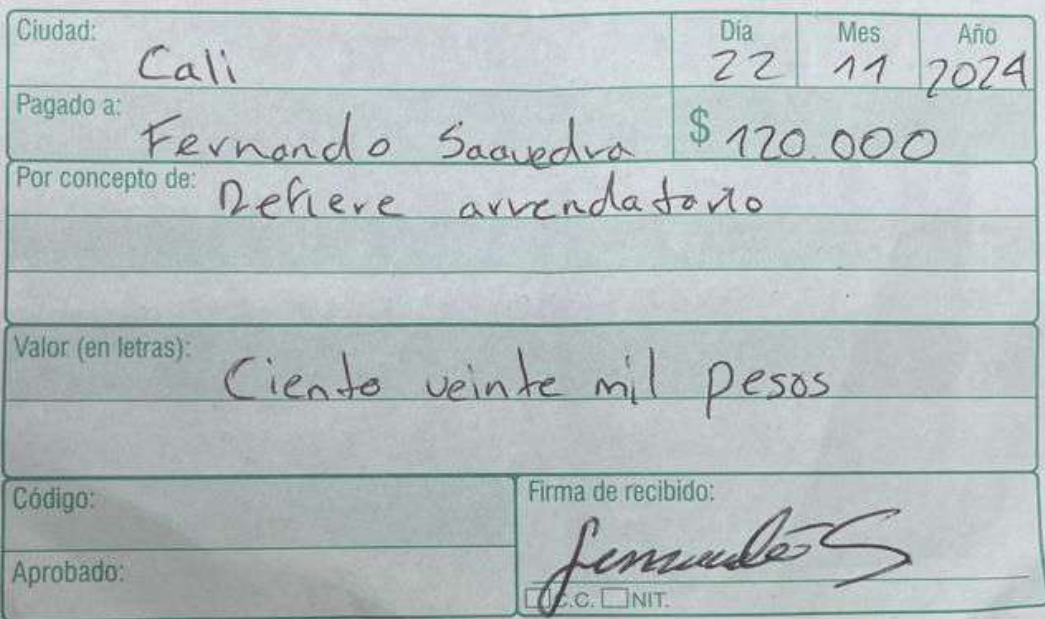 Ciudad: Cali Día 22 Mes 11 Año 2024
Pagado a: Fernando Saavedra $ 120.000
Por concepto de: Refiere arrendatario
Valor (en letras): Ciento veinte mil pesos
Código:
Firma de recibido:
Fernando S
Aprobado:
C.C. NIT.